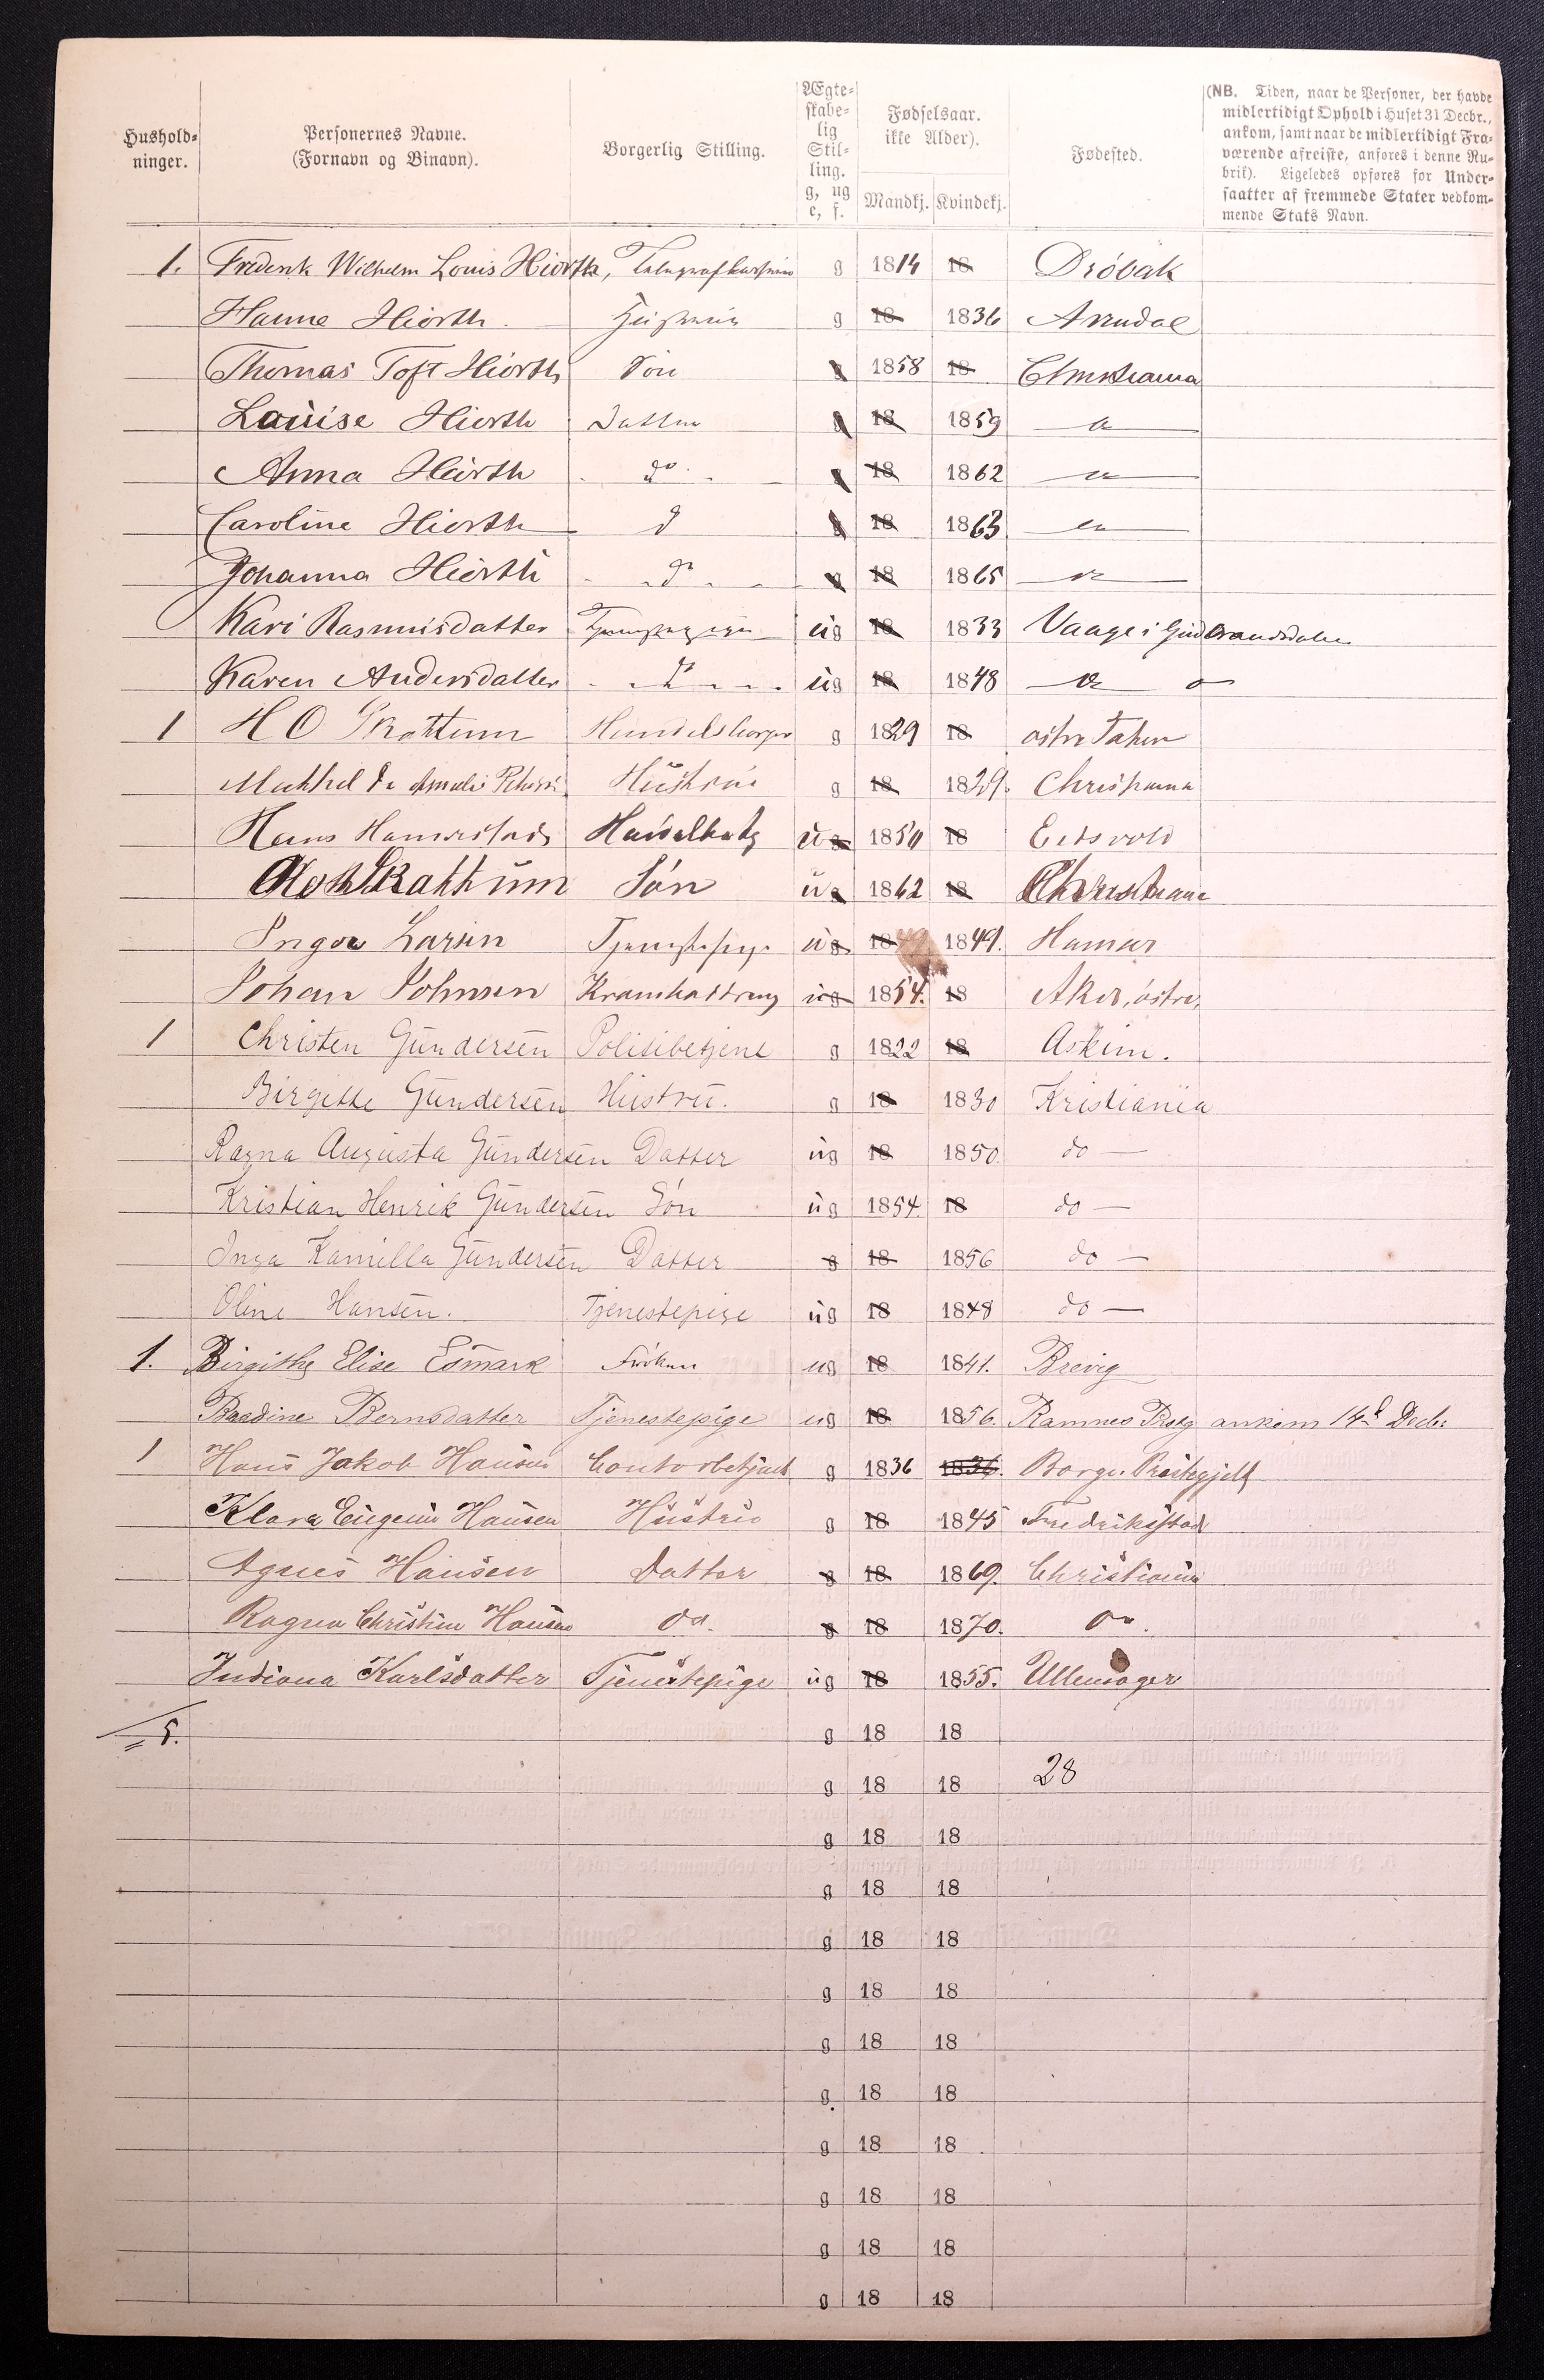 Hushold-
ninger.
Personernes Navne.
(Fornavn og Binavn).
Borgerlig Stilling.
Ægte-
skabe-
lig
Stil-
ling.
g, ug
e, f.
Fødselsaar.
ikke Alder).
Mandkj. Kvindekj.
Fødested.
(NB. Tiden, naar de Personer, der havde
midlertidigt Ophold i Huset 31 Decbr.,
ankom, samt naar de midlertidigt Fra-
værende afreiste, anføres i denne Ru-
brik). Ligeledes opføres for Under-
saatter af fremmede Stater vedkom-
mende Stats Navn.
1. Frederik Wilhelm Louis Hiorth, g 1814 18 Dröbak
Hanne Hiorth. g 18 1836 Arendal
Thomas Toft Hiorth Sön g 1858 18 Christiania
Louise Hiorth Datter g 18 1859
Anna Hiorth do. g 18 1862
Caroline Hiorth d g 18 1863
Johanna Hiorth do g 18 1865
Kari Rasmusdatter Tjenestepige ug 18 1833 Vaage i Gudbrandsdalen
Karen Andersdatter do ug 18 1848
1 H O Skattum Handelsborger g 1829 18
Hustru g 18 1829. Christiania
Hans ug 1850 18 Eidsvold
Skattum Sön ug 1862 18 Christiania
Inga Larsen Tjenestepige ug 1849 1849. Hamar
Johan Johnsen ug 1854. 18 Aker, östre,
1 Christen Gundersen Politibetjent g 1822 18 Askim.
Birgitte Gundersen Hustru. g 18 1830 Kristiania
Ragna Augusta Gundersen Datter ug 18 1850 do —
Kristian Henrik Gundersen Sön ug 1854. 18 do —
Inga Kamilla Gundersen Datter g 18 1856 do —
Oline Hansen. Tjenestepige ug 18 1848 do —
1. Birgithe Elise Esmark Fröken ug 18 1841. Brevig
Baadine Bernsdatter Tjenestepige ug 18 1856. Ramnes Prstg ankom 14d Decbr
1 Hans Jakob Hansen Contorbetjent g 1836 1836. Borge Præstegjeld
Klara Eugenie Hansen Hustru g 18 1845 Fredriksstad
Agnes Hansen Datter g 18 1869. Christiania
Ragna Christine Hansen do. g 18 1870. do.
Indiana Karlsdatter Tjenestepige ug 18 1855. Ullensager
5. g 18 18
g 18 18 28
g 18 18
g 18 18
g 18 18
g 18 18
g 18 18
g 18 18
g 18 18
g 18 18
g 18 18
g 18 18